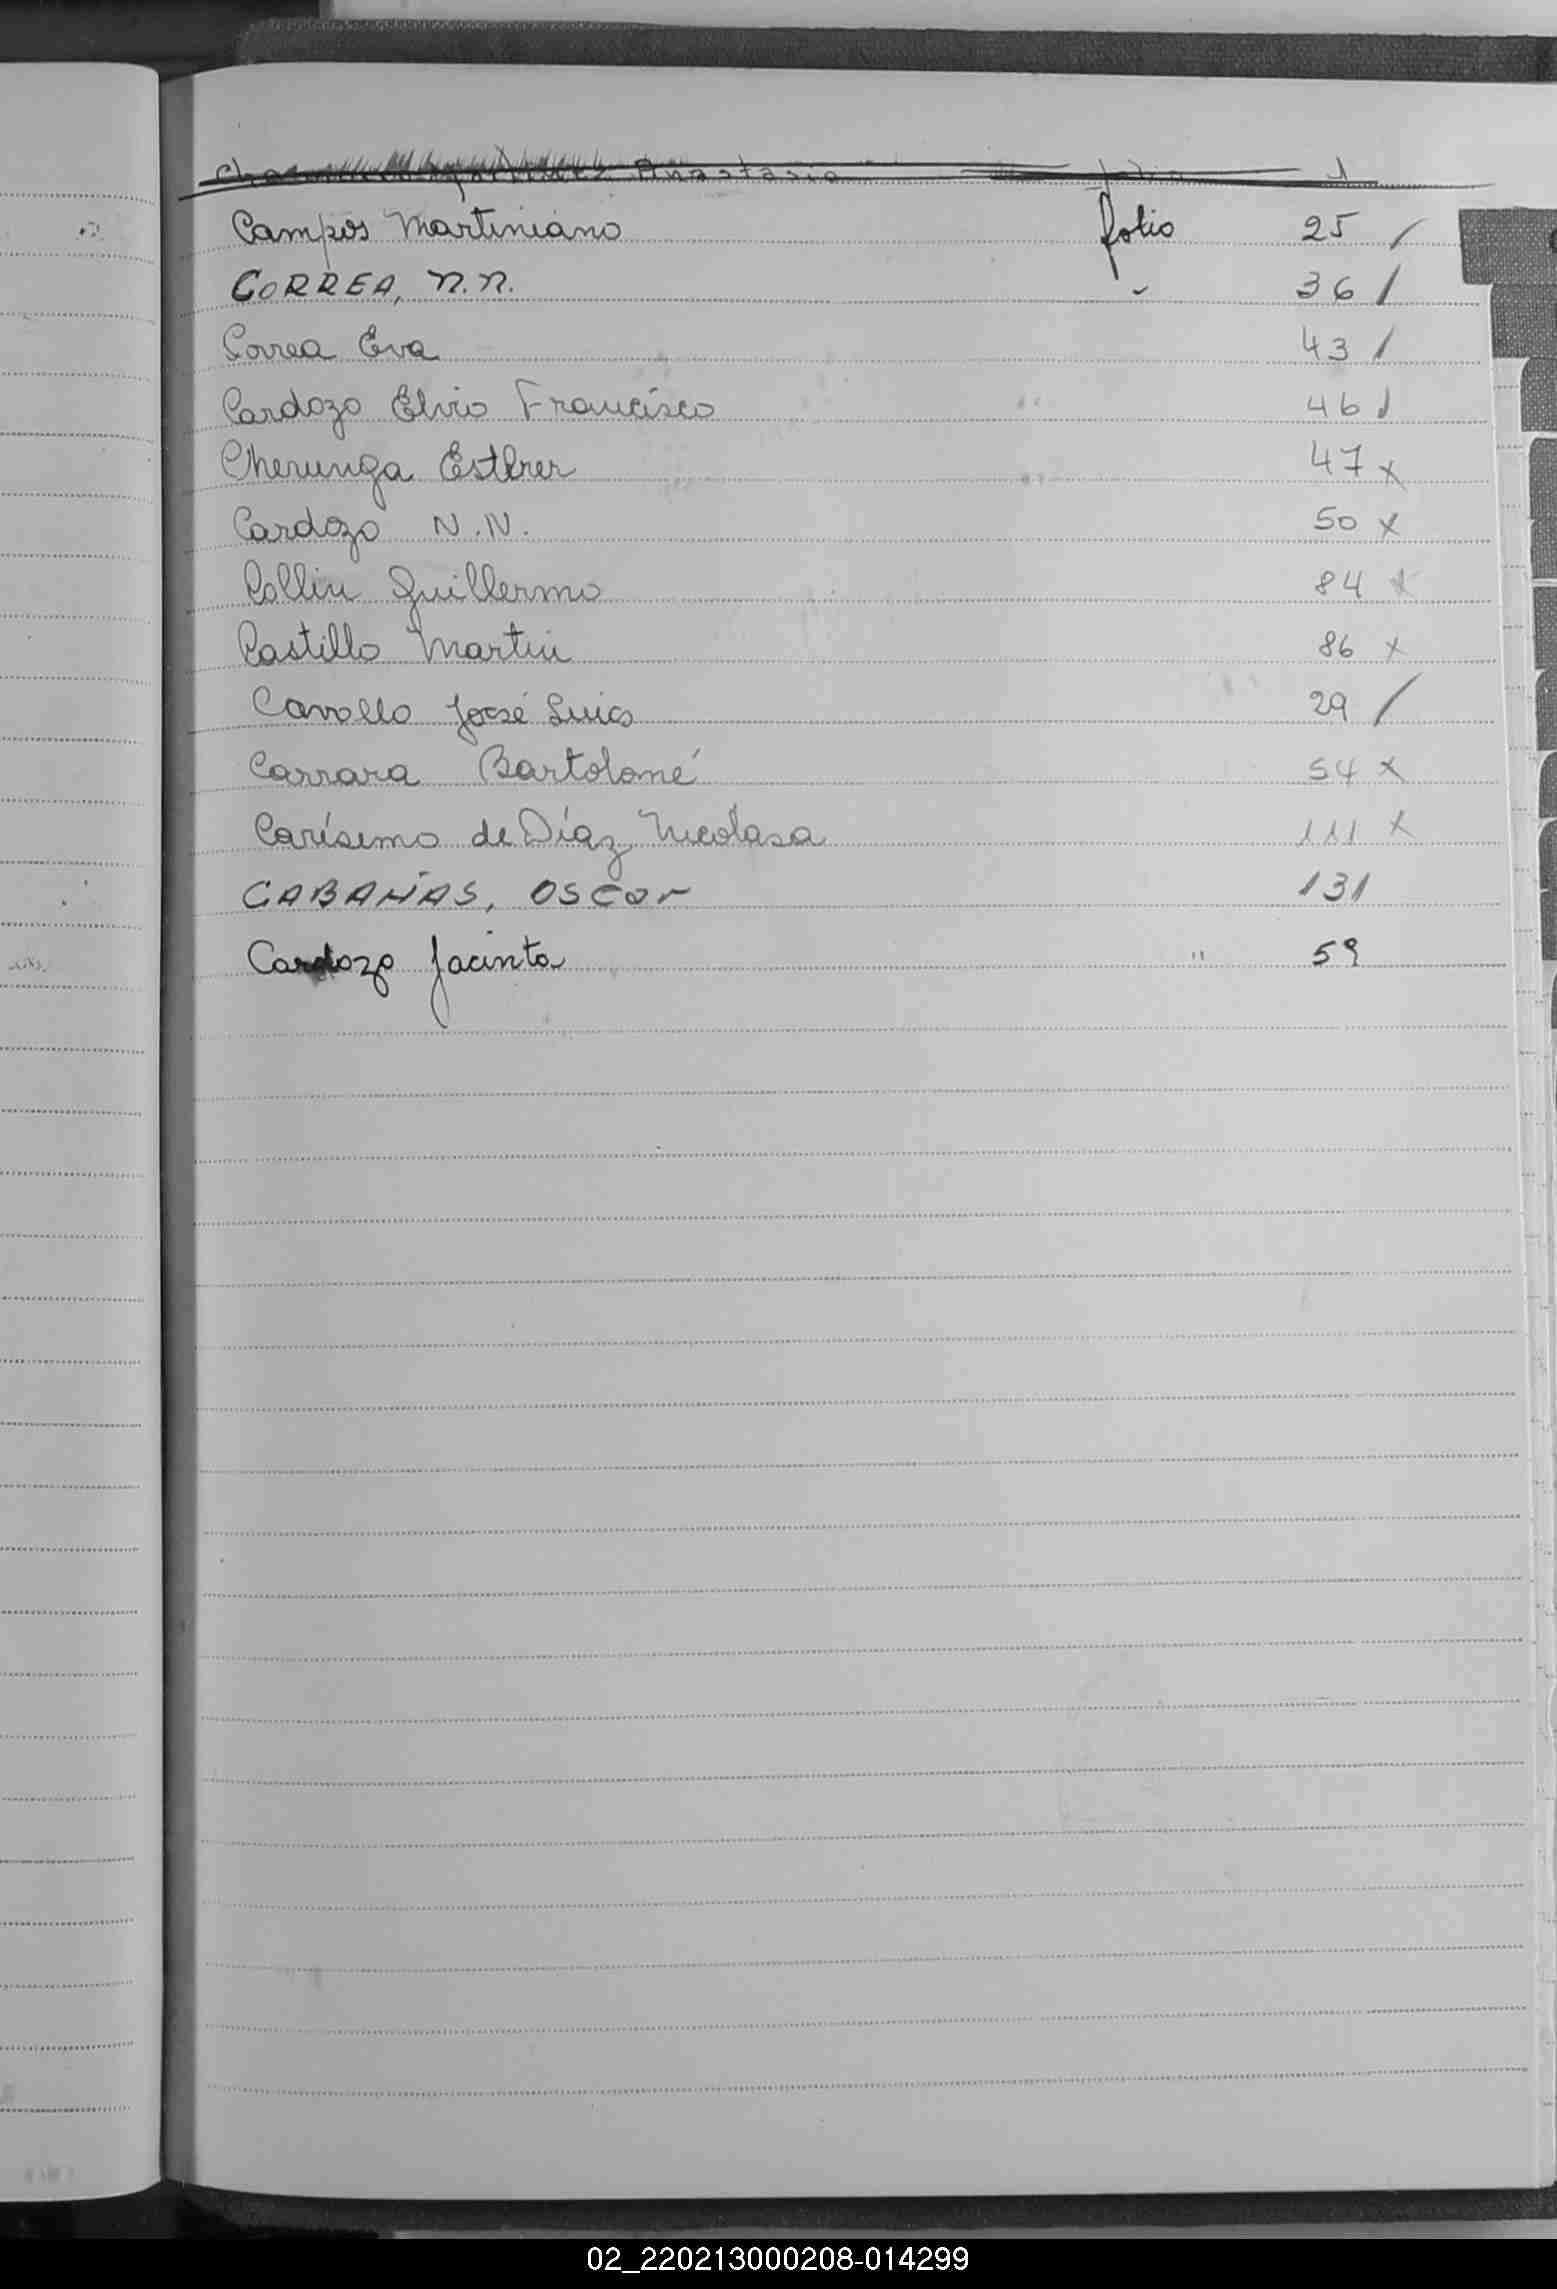 Anastasio folio 1
Campos Martiniano folio 25 /
CORREA, N.N. " 36 /
Correa Eva 43 /
Cardozo Elvio Francisco " 46 /
Cherunga Esther " 47 x
Cardozo N.N. 50 x
Collin Guillermo 84 x
Castillo Martin 86 x
Cavallo José Luis 29 /
Carrara Bartolomé 54 x
Carísimo de Díaz Nicolasa 111 x
CABAÑAS, OSCar 131
Cardozo Jacinta " 59
02_220213000208-014299